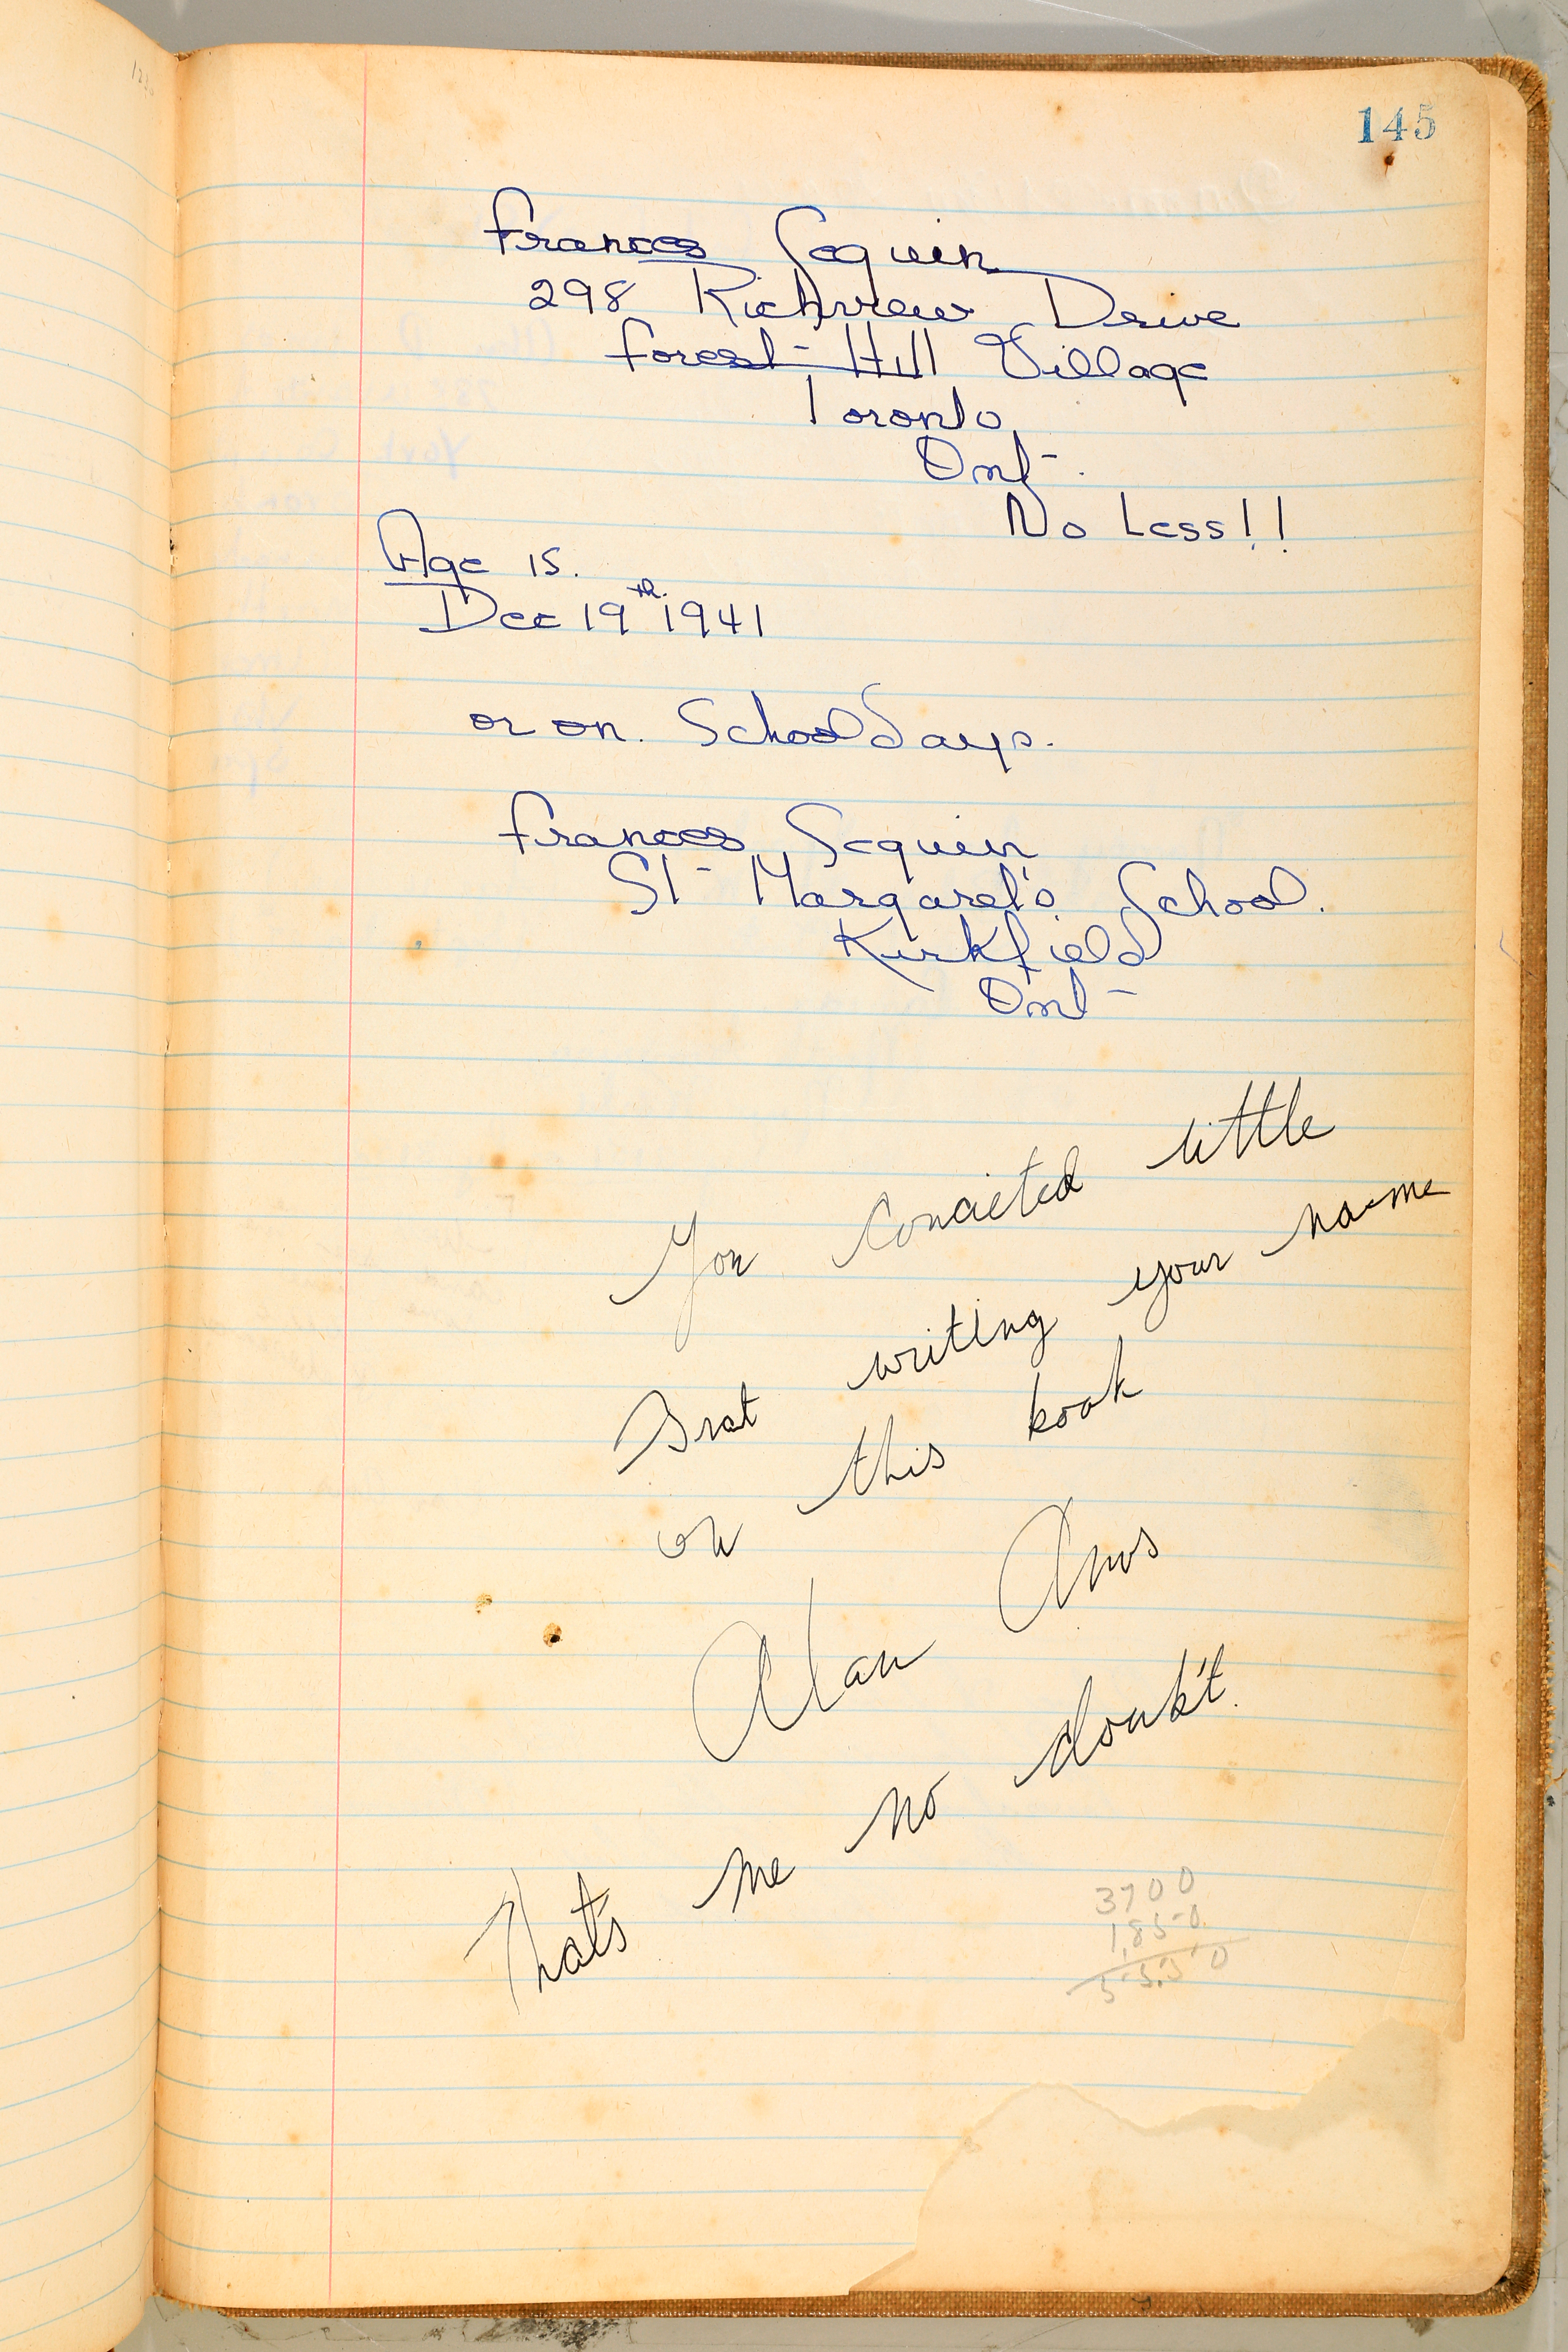 145
Frances Seguin
298 Richview Drive
Forest Hill Village
Toronto
Ont.
No Less!!
Age 15.
Dec 19th 1941
or on. School days.
Frances Seguin
St Margaret's School.
Kirkfield
Ont
You Concieted little
Brat writing your name
on this book
Alan
Thats me no doubt.
3700
1850
5550